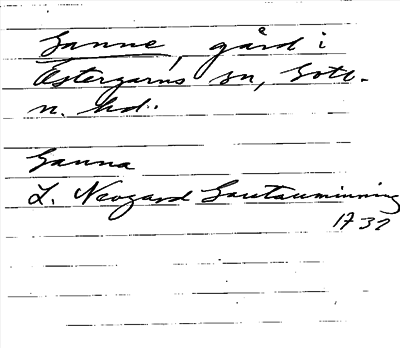 Ganne, gård i
Östergarns sn, Gotl.
n. hd.
Ganna
L. Neogard Gautauminning
1732